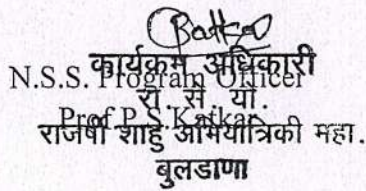 कार्यक्रम अधिकारी
N.S.S. Program Officer
रा. से. यो.
Prof P.S. Katkar
राजर्षी शाहु अभियांत्रिकी महा.
बुलडाणा